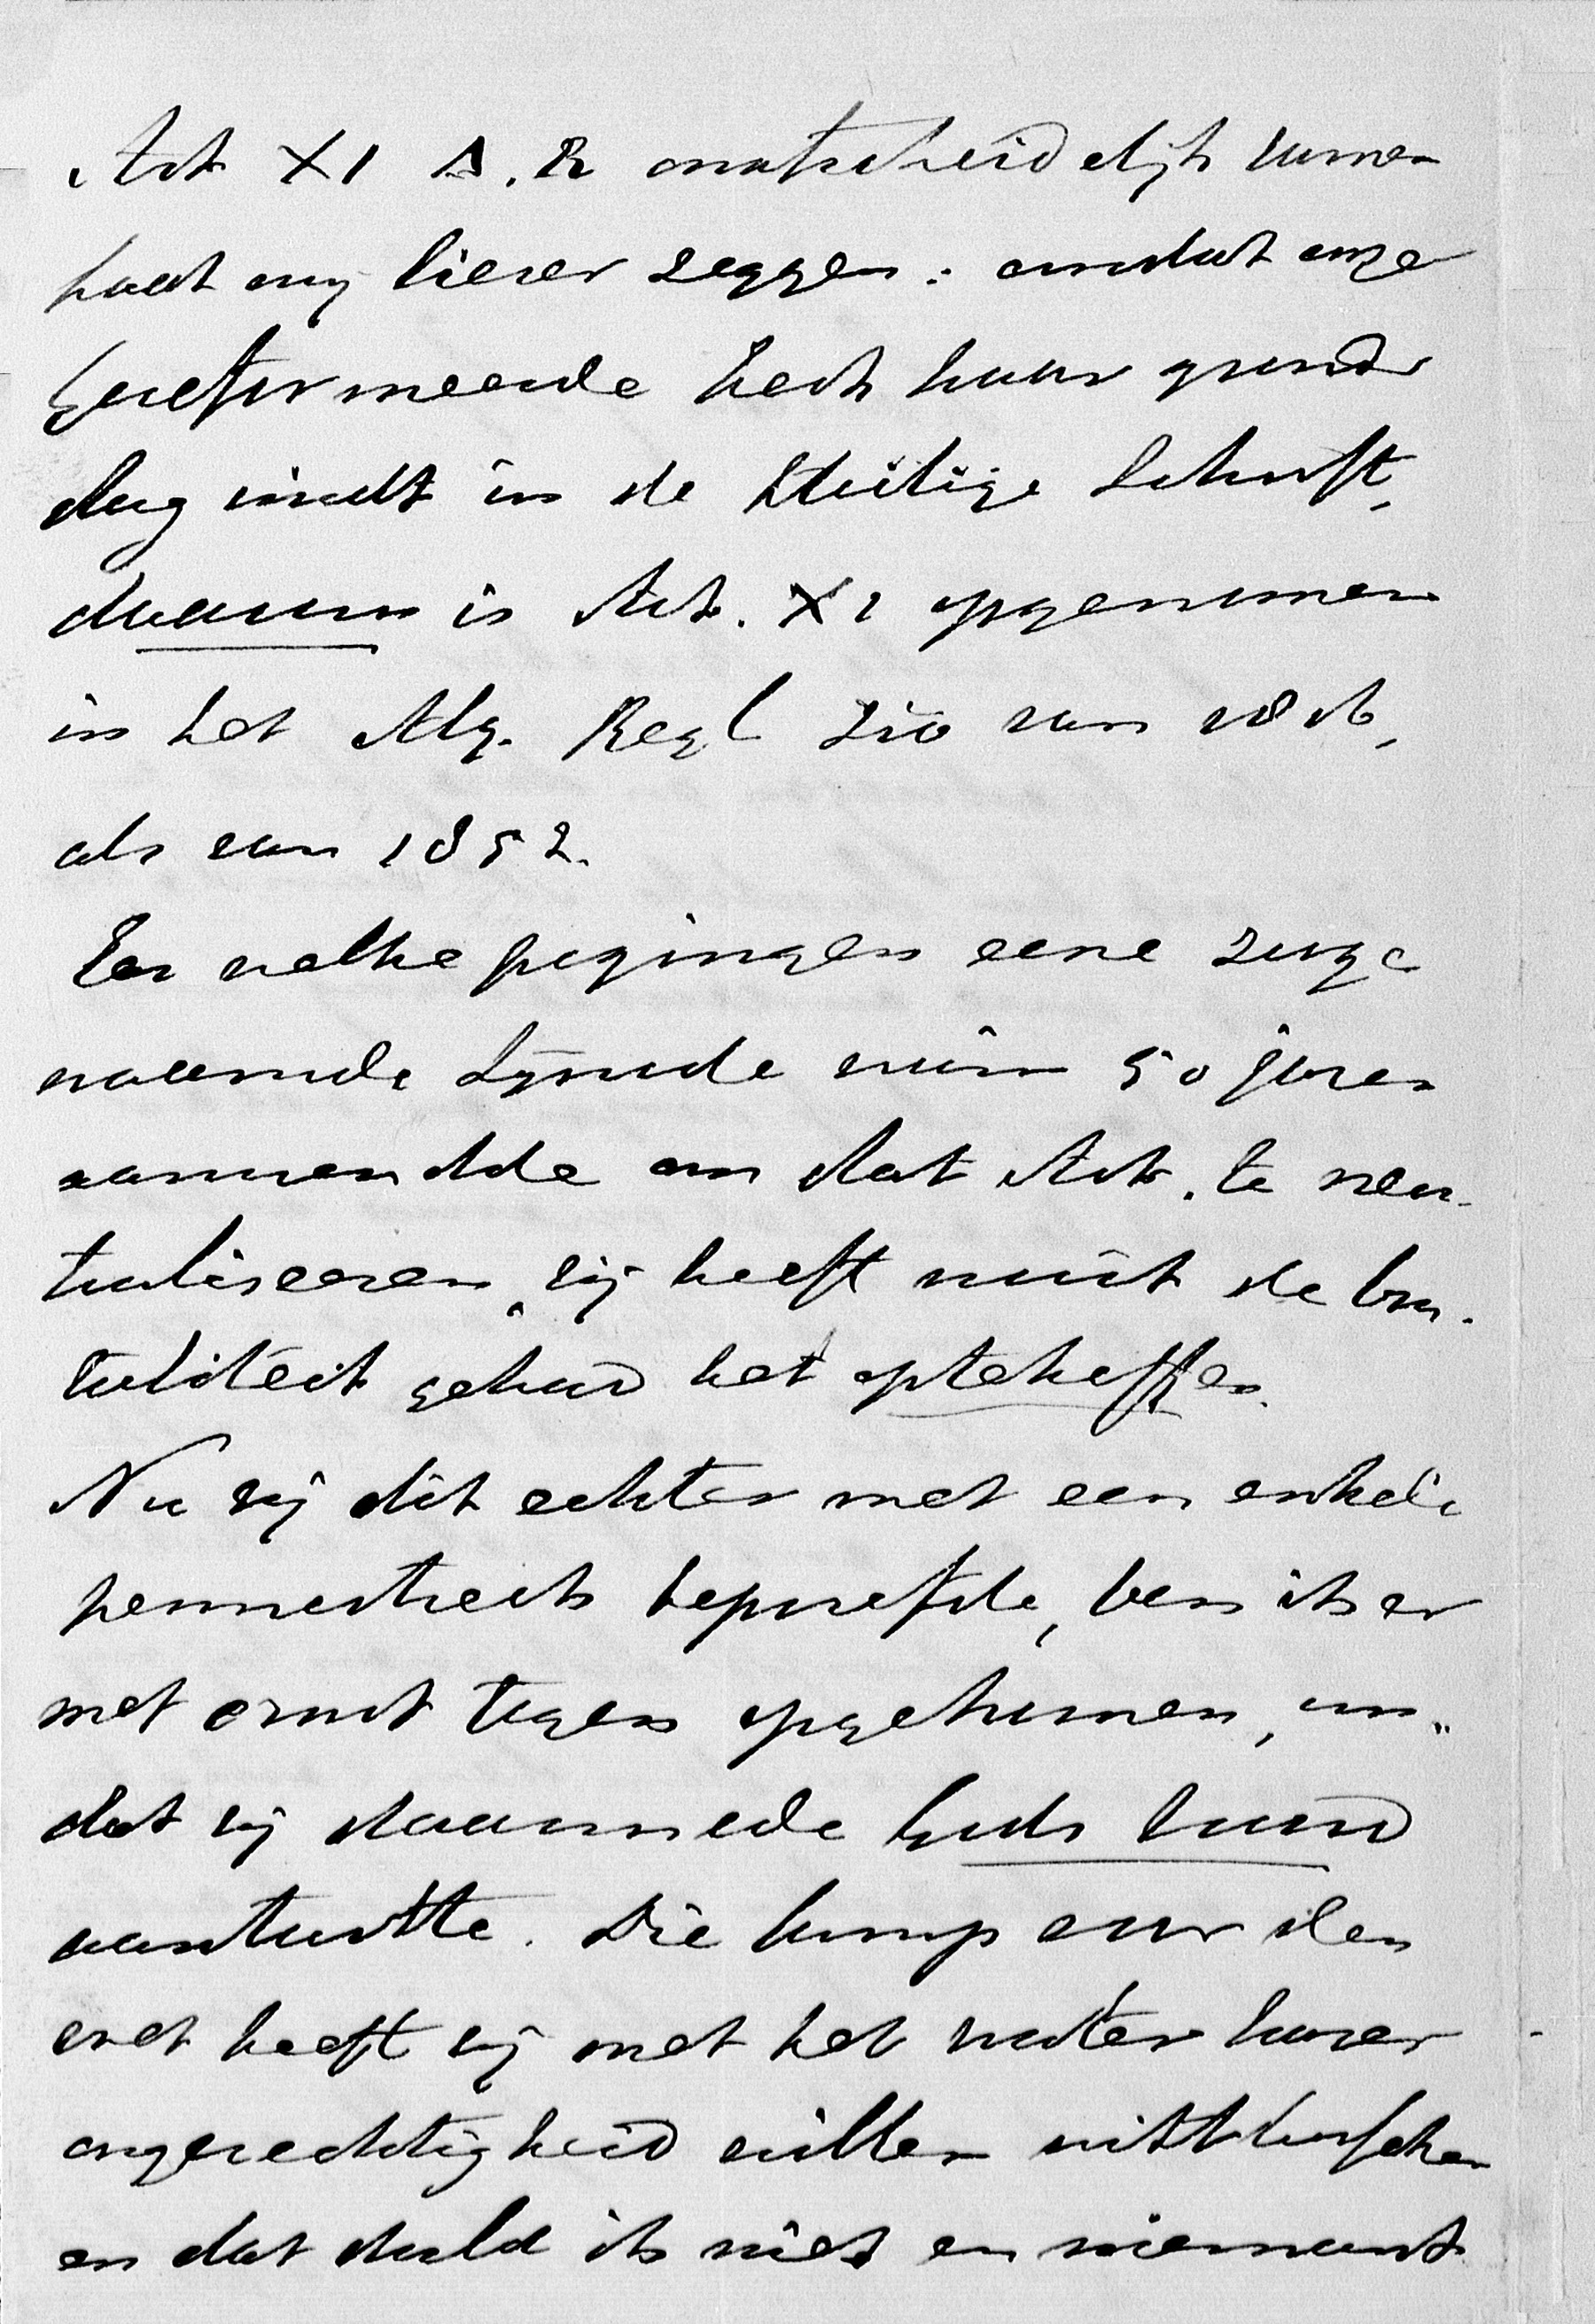 Art XI A. R onafscheidelijk samen
laat mij liever zeggen: omdat onze
Gereformeerde Kerk haar gronds
lag vindt in de Heilige Schrift,
daarom is Art. XI opgenomen
in het Alg. Regl zoo van 1816,
als van 1852.
En welke pogingen eene zoge
naamde Synode ruim 50 jaren
aanwendde om dat Art. te neu-
traliseeren, zij heeft nooit de bru-
taliteit gehad het opteheffen.
Nu zij dit echter met een enkele
pennestreek beproefde, ben ik er
met ernst tegen opgekomen, om„
dat zij daarmede Gods Woord
aantastte. Die lamp voor den
voet heeft zij met het water harer
ongerechtigheid willen uitblusschen
en dat duld ik niet en niemand